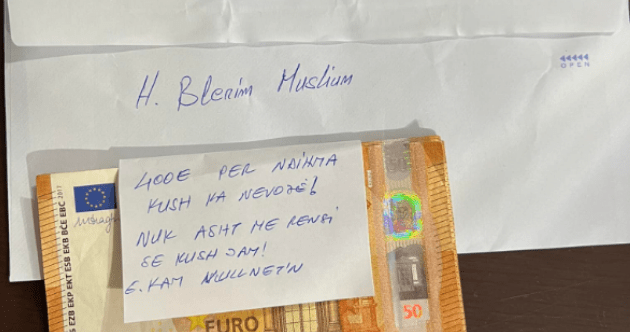 OPEN
H. Blerim Muslium
400E PER NDIHMA
KUSH KA NEVOJË!
NUK ASHT ME RENSI
SE KUSH JAM!
E. KAM
2017
EZB EKP EKT ESB EKB BCE EBC
EURO
50